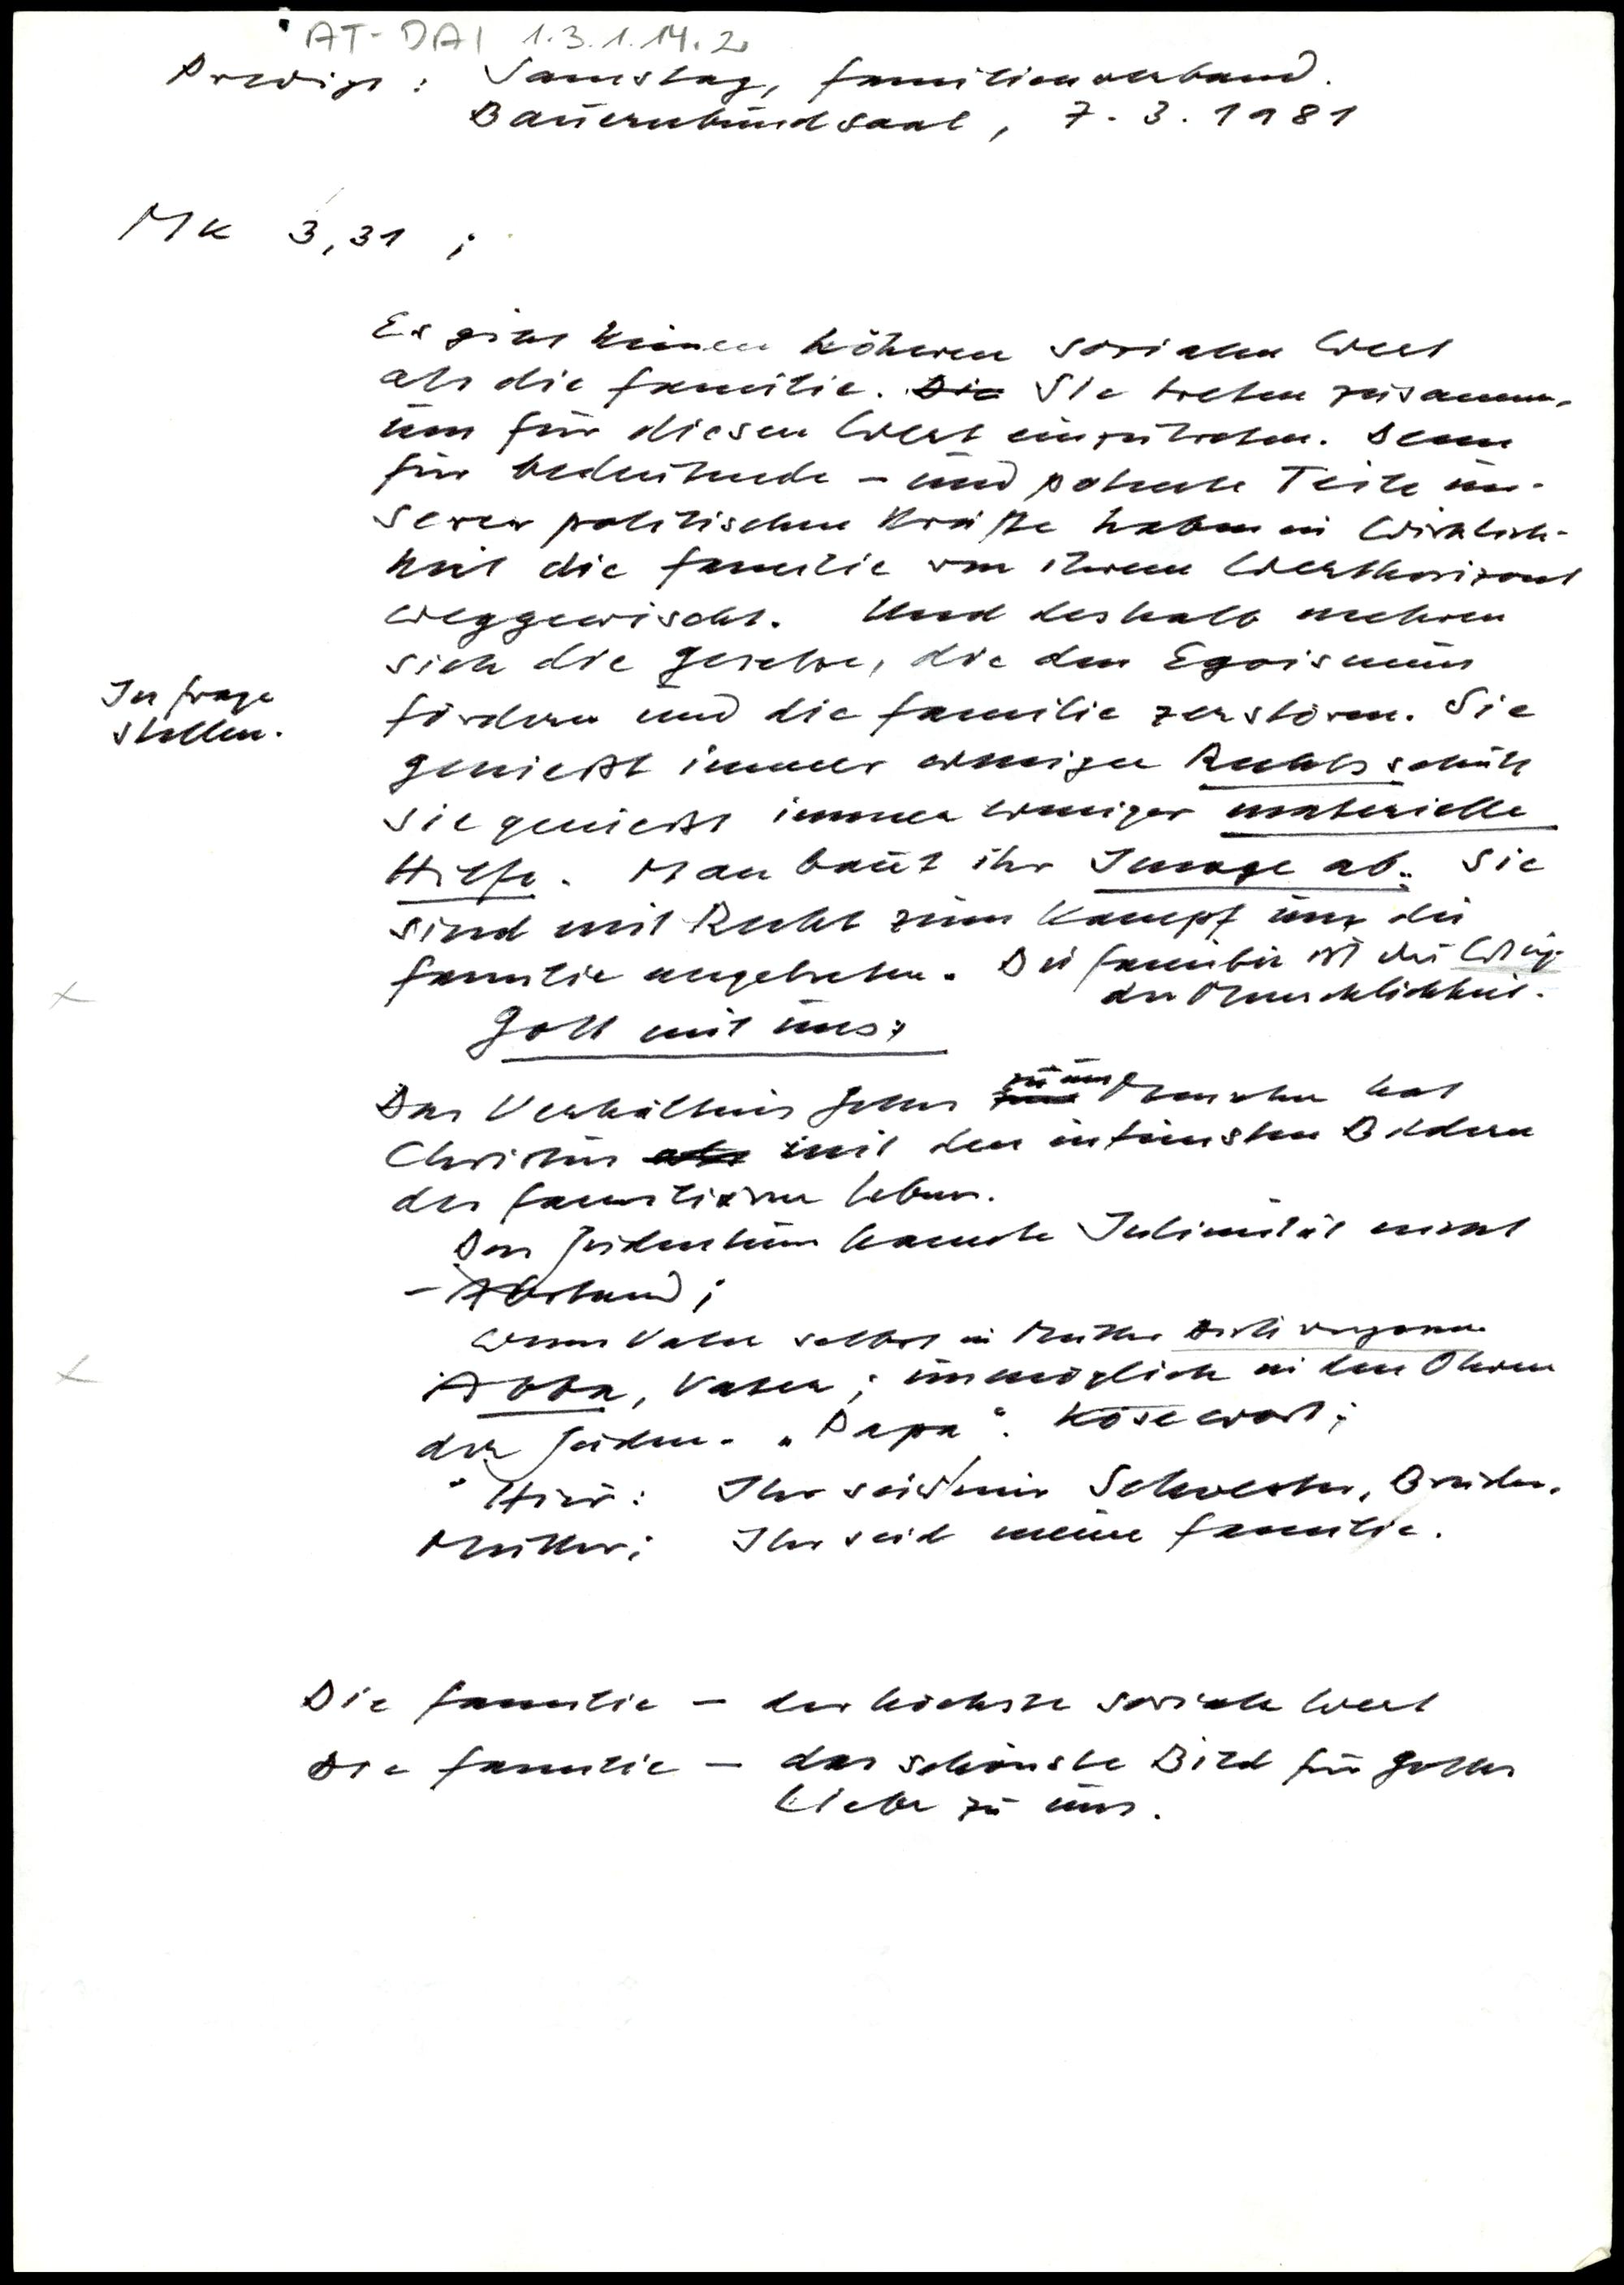 AT-DAI 1.3.1.14.2.
Predigt: Samstag, Familienverband.
Bauernbundsaal, 7.3.1981
MK 3,31;
Es gibt keinen höheren sozialen Wert
als die Familie. Die Sie treten zusammen,
um für diesen Wert einzutreten. Denn
für bedeutende – und potente Teile un-
serer politischen Kräfte haben in Wirklich-
keit die Familie von ihrem Werthorizont
weggewischt. Und deshalb mehren
sich die Gesetze, die den Egoismus
In Frage
stellen.
fördern und die Familie zerstören. Sie
genießt immer weniger Rechtsschutz
sie genießt immer weniger materielle
Hilfe. Man baut ihr Image ab. Sie
sind mit Recht zum Kampf um die
Familie angetreten. Die Familie ist die Wiege
der Menschlichkeit.
Gott mit uns:
Das Verhältnis Gottes zu uns Menschen hat
Christus als mit den intimsten Bildern
des familiären Lebens.
Das Judentum kannte Intimität nicht
– Abstand;
wenn Vater selbst in Mutter
Abba, Vater; unmöglich in den Ohren
der Juden. „Papa“. Kosewort;
Hier: Ihr seid mir Schwester, Bruder,
Mutter; Ihr seid meine Familie.
Die Familie – der höchste soziale Wert
Die Familie – das schönste Bild für Gottes
Liebe zu uns.